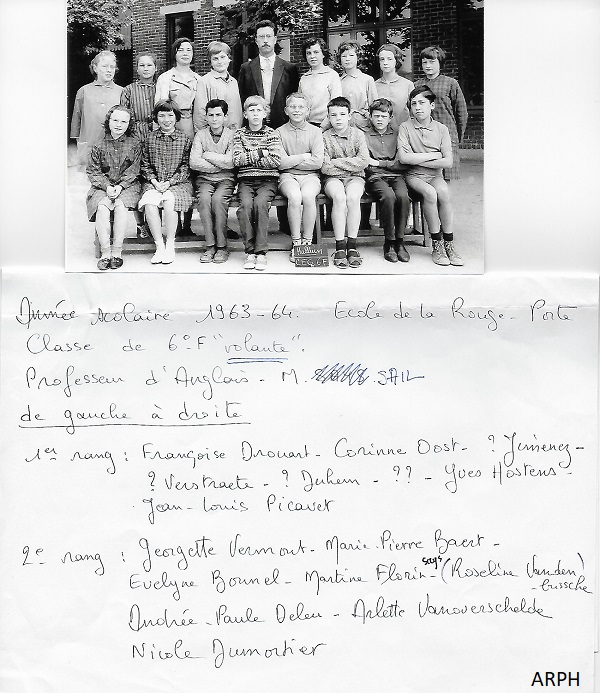 Halluin
C.E.G. 6F
Année scolaire 1963-64. Ecole de la Rouge-Porte
Classe de 6e F "volante".
Professeur d'Anglais - M. SAIL
de gauche à droite
1er rang : Françoise Drouart - Corinne Oost - ? Jimenez -
? Verstraete - ? Duhem - ?? - Yves Hostens -
Jean-Louis Picavet
2e rang : Georgette Vermont - Marie-Pierre Baert -
Evelyne Bonnel - Martine Florin - (Roseline Vanden)
-bussche
Andrée-Paule Deleu - Arlette Vanoverschelde
Nicole Dumortier
ARPH